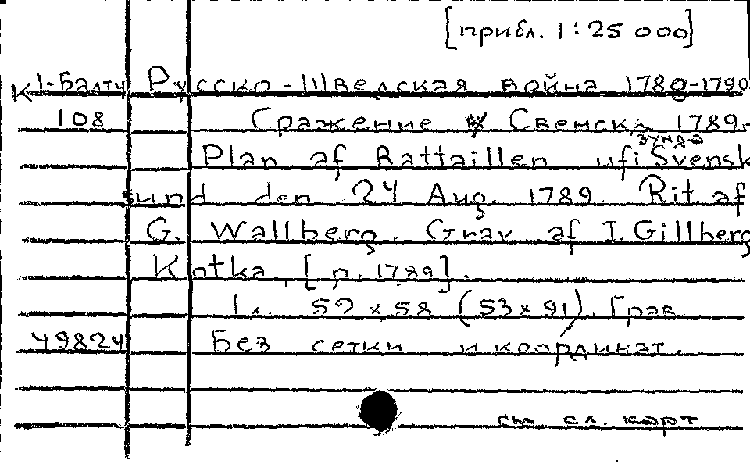 [прибл. 1:25 000]
К 1-Балти Русско-Шведская война 1788-1790
108 Сражение у Свенска- 1789.
зунда
Plan af Battaillen ufi Svensk
sund den 24 Aug. 1789. Rit af
G. Wallberg. Grav af I. Gillberg
Kotka, [п. 1789].
1 л. 52 x 58 (53 x 91). Грав
49824 Без сетки и координат.
см сл. карт